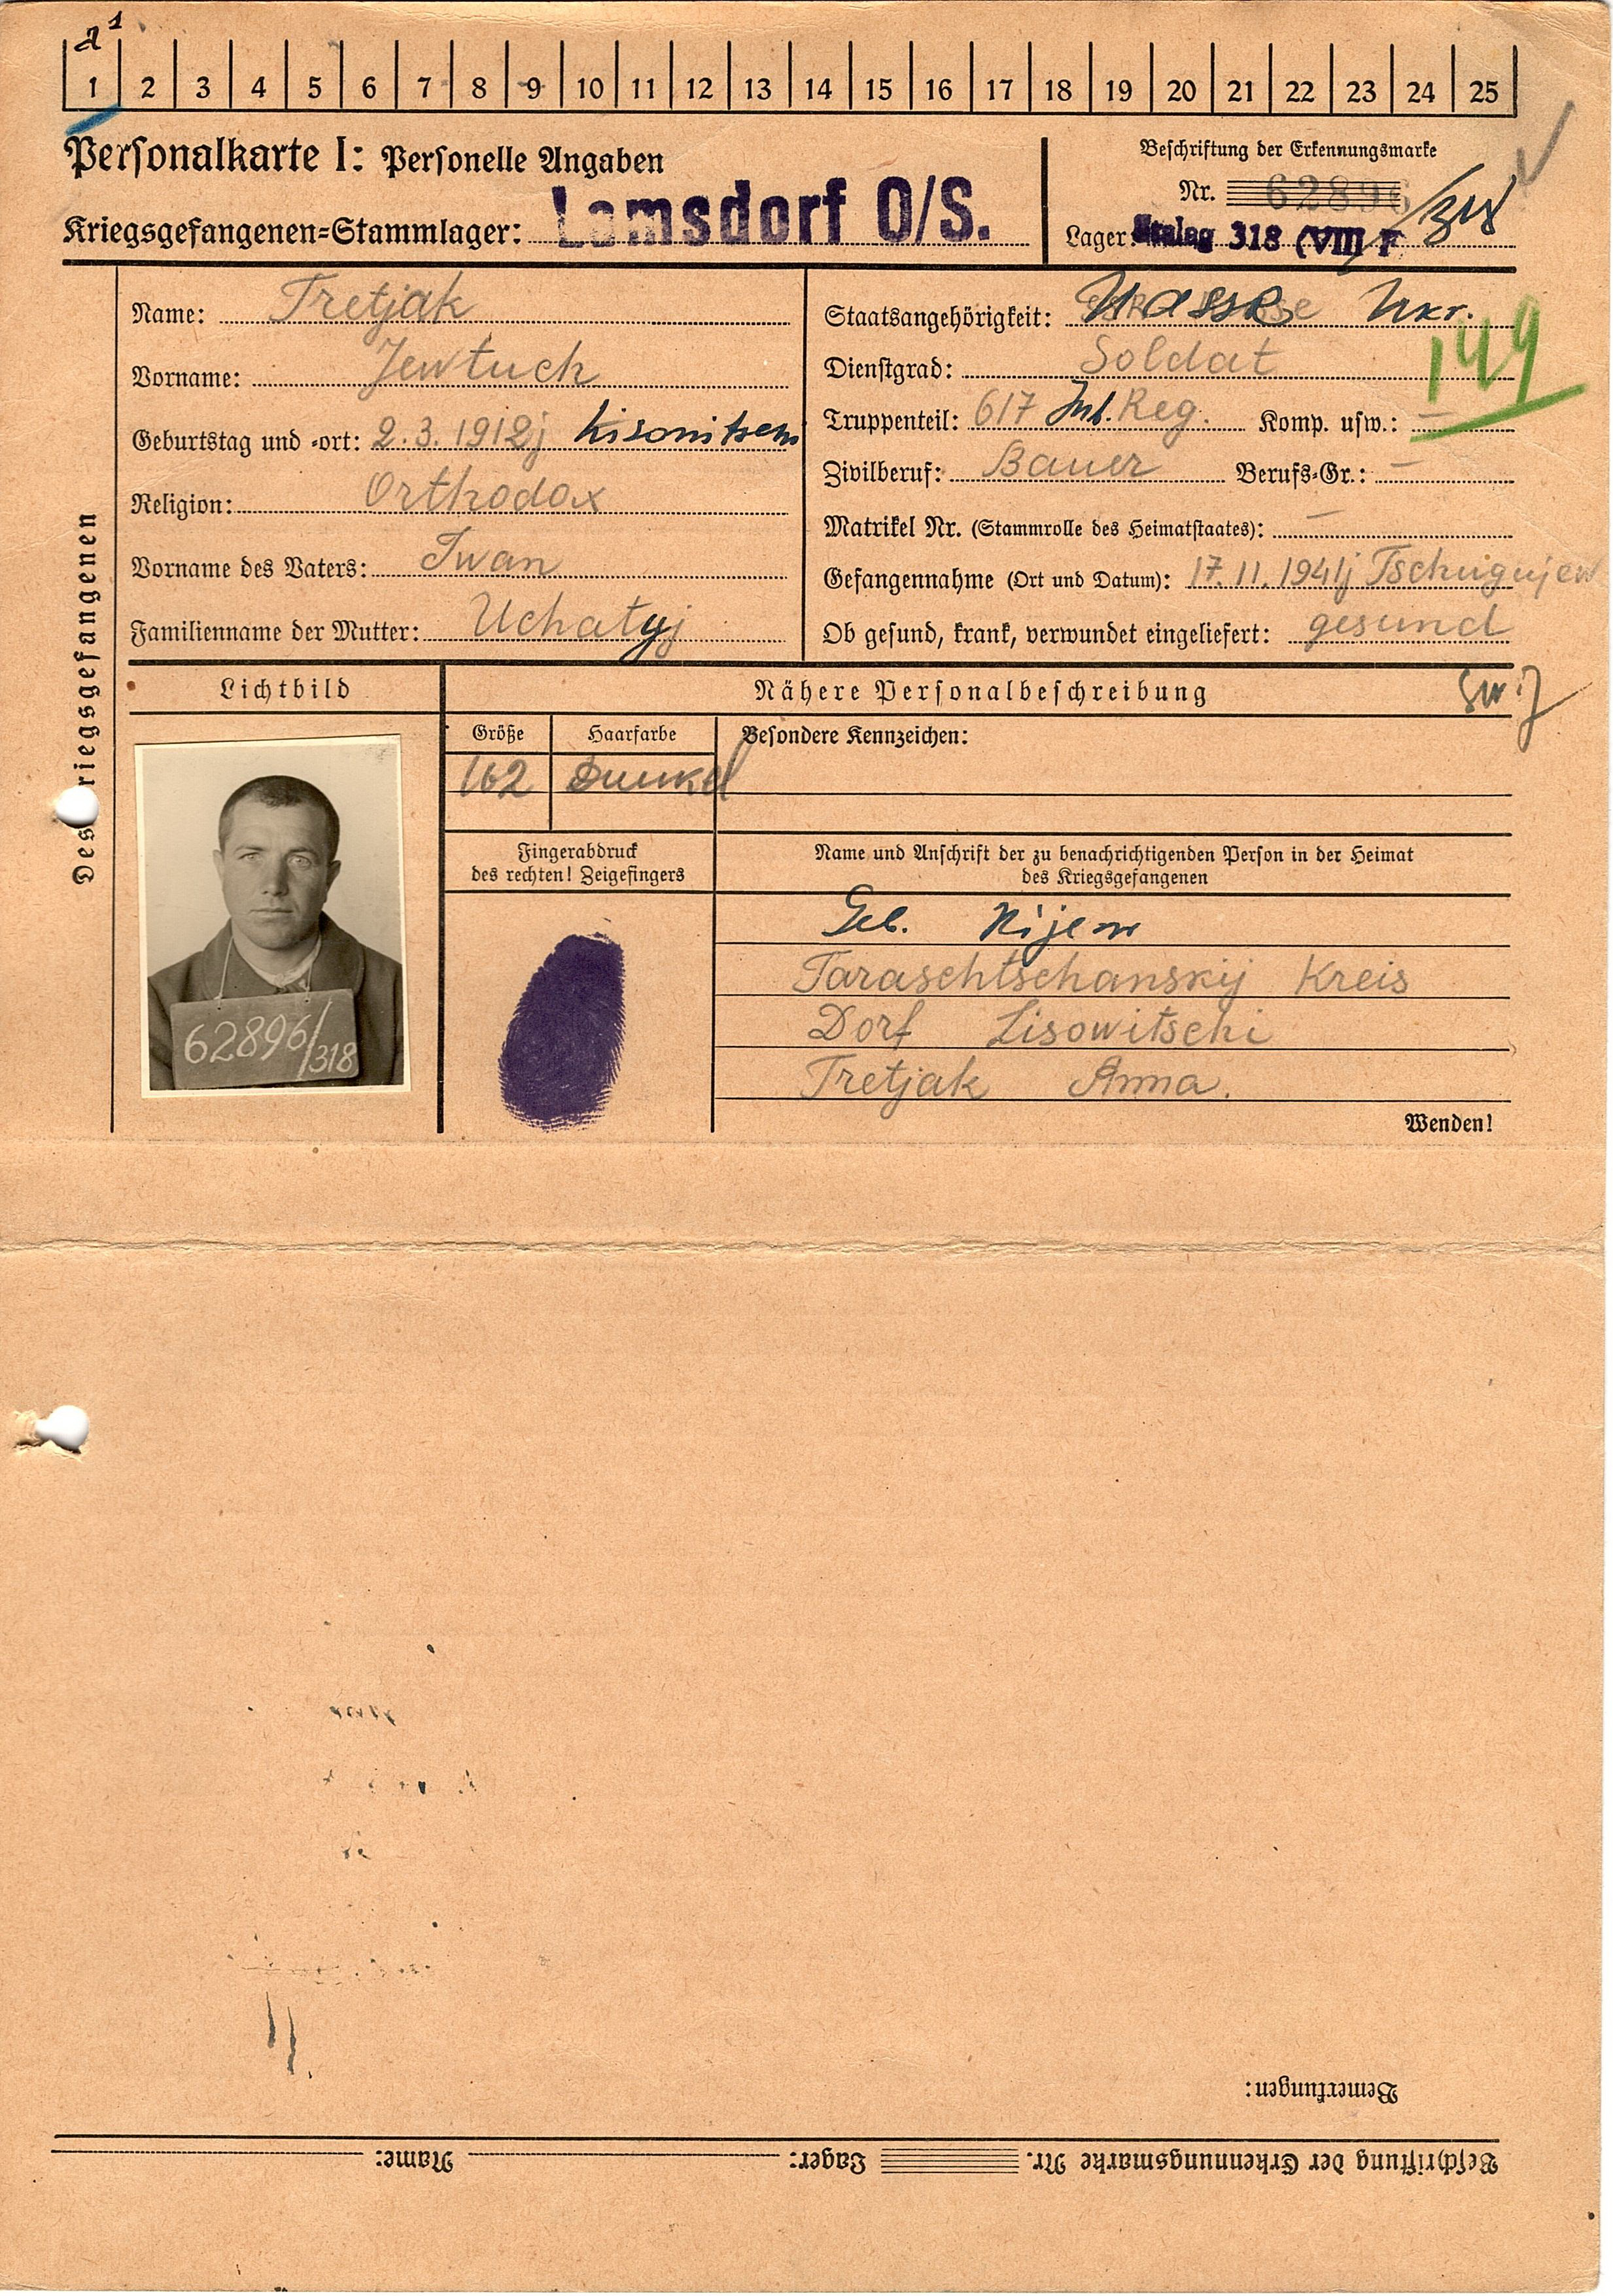 1 2 3 4 5 6 7 8 9 10 11 12 13 14 15 16 17 18 19 20 21 22 23 24 25
Personalkarte I: Personelle Angaben
Kriegsgefangenen-Stammlager: Lamsdorf O/S.
Beschriftung der Erkennungsmarke
Nr. 62896
Lager: Stalag 318 (VIII) F
Des Kriegsgefangenen
Name: Tretjak
Vorname: Jewtuch
Geburtstag und -ort: 2.3.1912j
Religion: Orthodox
Vorname des Vaters: Iwan
Familienname der Mutter: Uchatyj
Staatsangehörigkeit: Ukr.
149
Dienstgrad: Soldat
Truppenteil: 617 Inf. Reg. Komp. usw.: –
Zivilberuf: Bauer Berufs-Gr.: –
Matrikel Nr. (Stammrolle des Heimatstaates): –
Gefangennahme (Ort und Datum): 17.11.1941j Tschugujew
Ob gesund, krank, verwundet eingeliefert: gesund
Lichtbild
62896/318
Nähere Personalbeschreibung
Größe Haarfarbe Besondere Kennzeichen:
162 Dunkel
Fingerabdruck
des rechten! Zeigefingers
Name und Anschrift der zu benachrichtigenden Person in der Heimat
des Kriegsgefangenen
Geb. Kijew
Taraschtschanskij Kreis
Dorf Lisowitschi
Tretjak Anna.
Wenden!
Bemerkungen:
Beschriftung der Erkennungsmarke Nr. Lager: Name: